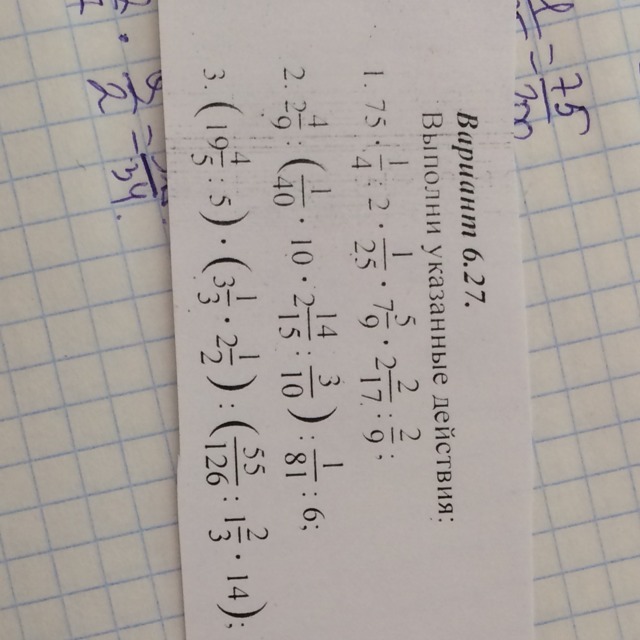 Вариант 6.27.
Выполни указанные действия:
1. 75 · 1/4 : 2 · 1/25 · 7 5/9 · 2 2/17 : 2/9;
2. 2 4/9 : (1/40 · 10 · 2 14/15 : 3/10) : 1/81 : 6;
3. (19 4/5 : 5) · (3 1/3 · 2 1/2) : (55/126 : 1 2/3 · 14);
= 75/200